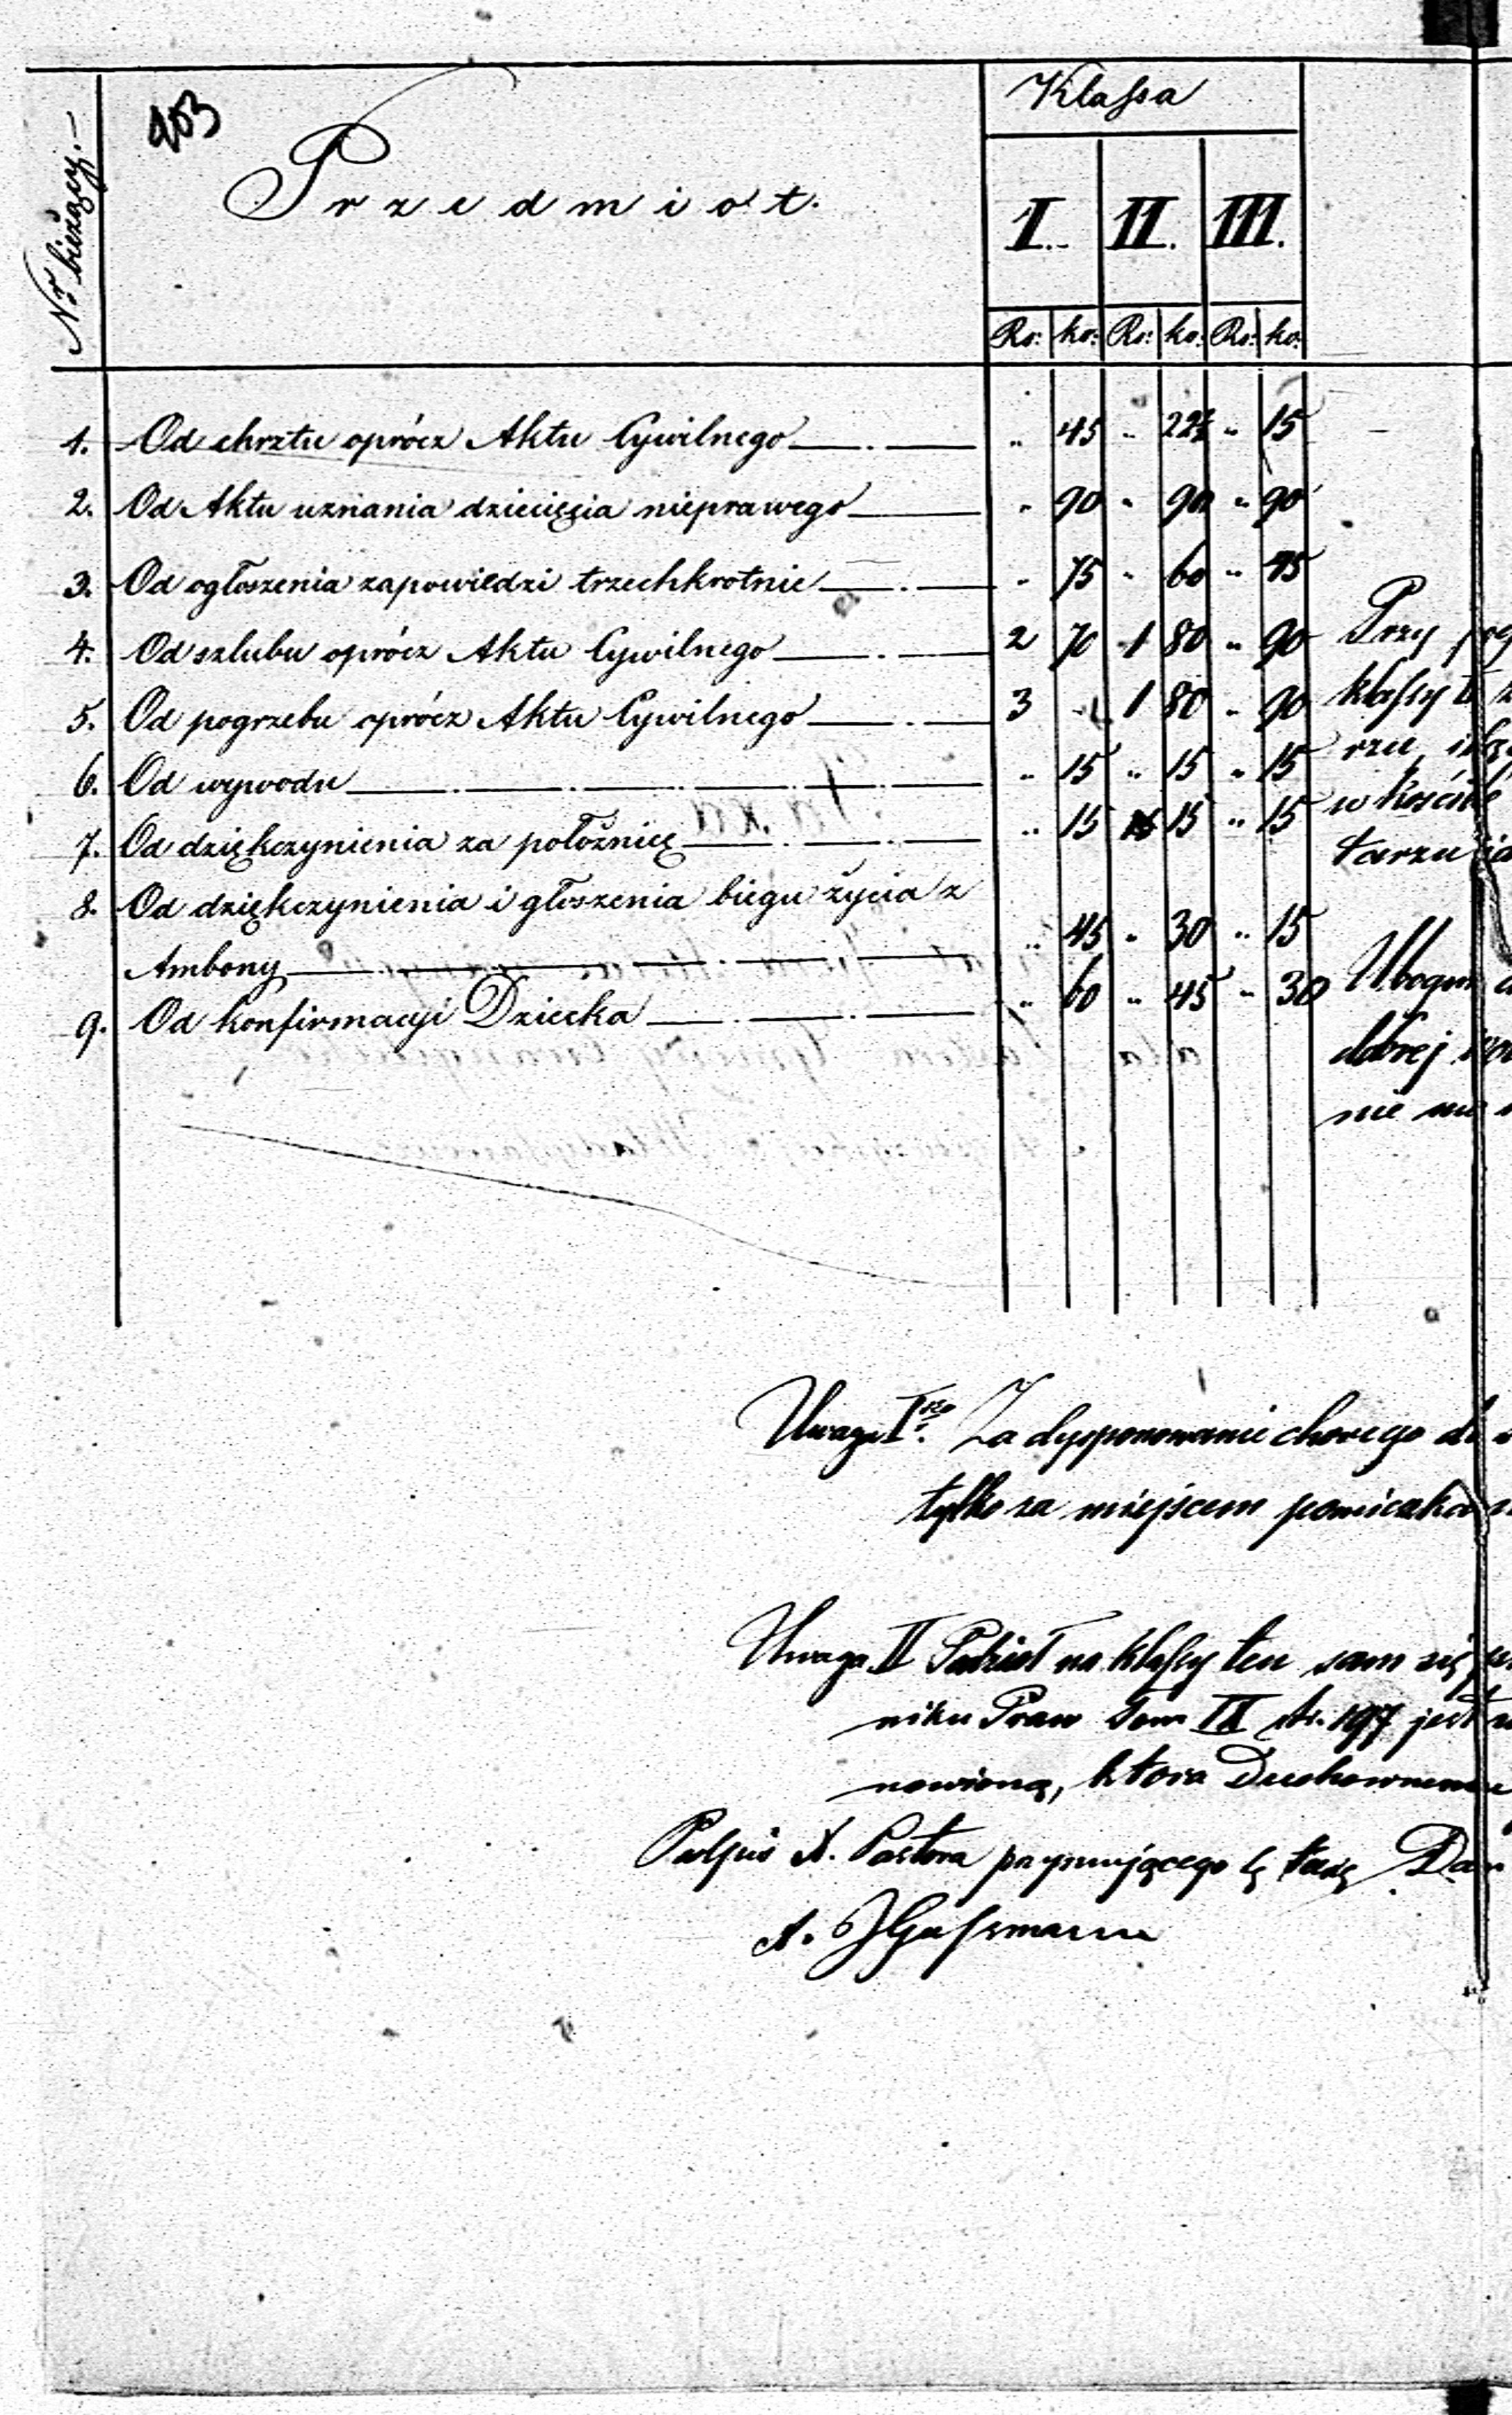 203
Nr bieżący.
Przedmiot.
Klassa
I. II. III.
Rs: ko: Rs: ko: Rs: ko:
1. Od chrztu oprócz Aktu Cywilnego „ 45 „ 22½ „ 15
2. Od Aktu uznania dziecięcia nieprawego „ 90 „ 90 „ 90
3. Od ogłoszenia zapowiedzi trzechkrotnie „ 75 „ 60 „ 45
4. Od szlubu oprócz Aktu Cywilnego 2 70 1 80 „ 90
5. Od pogrzebu oprócz Aktu Cywilnego 3 - 1 80 „ 90
6. Od wywodu „ 15 „ 15 „ 15
7. Od dziękczynienia za położnicę „ 15 15 „ 15
8. Od dziękczynienia i głoszenia biegu życia z
Ambony „ 45 „ 30 „ 15
9. Od konfirmacyi Dziecka „ 60 „ 45 „ 30
Przy
klassy
rzu
w kościele
tarzu
Ubogim
dobrej
nie
Uwaga I. Za dysponowanie chorego do
tylko za miejscem
Uwaga II Podział na klassy ten sam się
niku Praw Tom IX str. 197 jest
nowioną, która
Podpis A. Pastora przyjmującego tę taxę